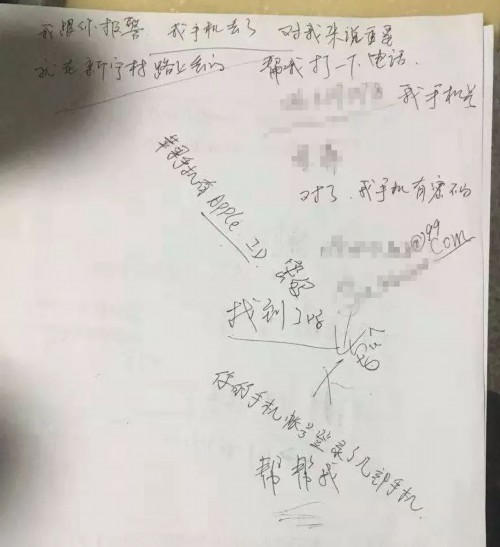 我想你报警 我手机丢了 对我来说重要
就在新宁村路上丢的 帮我打一下电话.
我手机号
苹果手机有Apple ID.
对了.我手机有密码
@qq
com
找到了吗
你的手机帐号登录了几部手机.
帮帮我